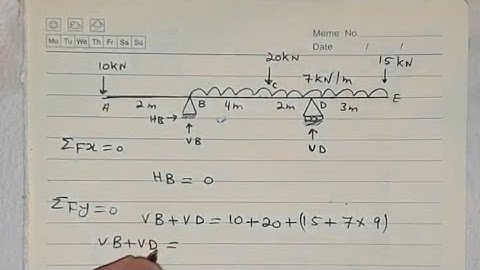 Meme No.
Date / /
Mo Tu We Th Fr Sa Su
10kN 20kN 7kN/m 15kN
A 2m B 4m C 2m D 3m E
HB→
↑ ↑
VB VD
ΣFx=0
HB = 0
ΣFy=0
VB+VD = 10+20+(15+7×9)
VB+VD =